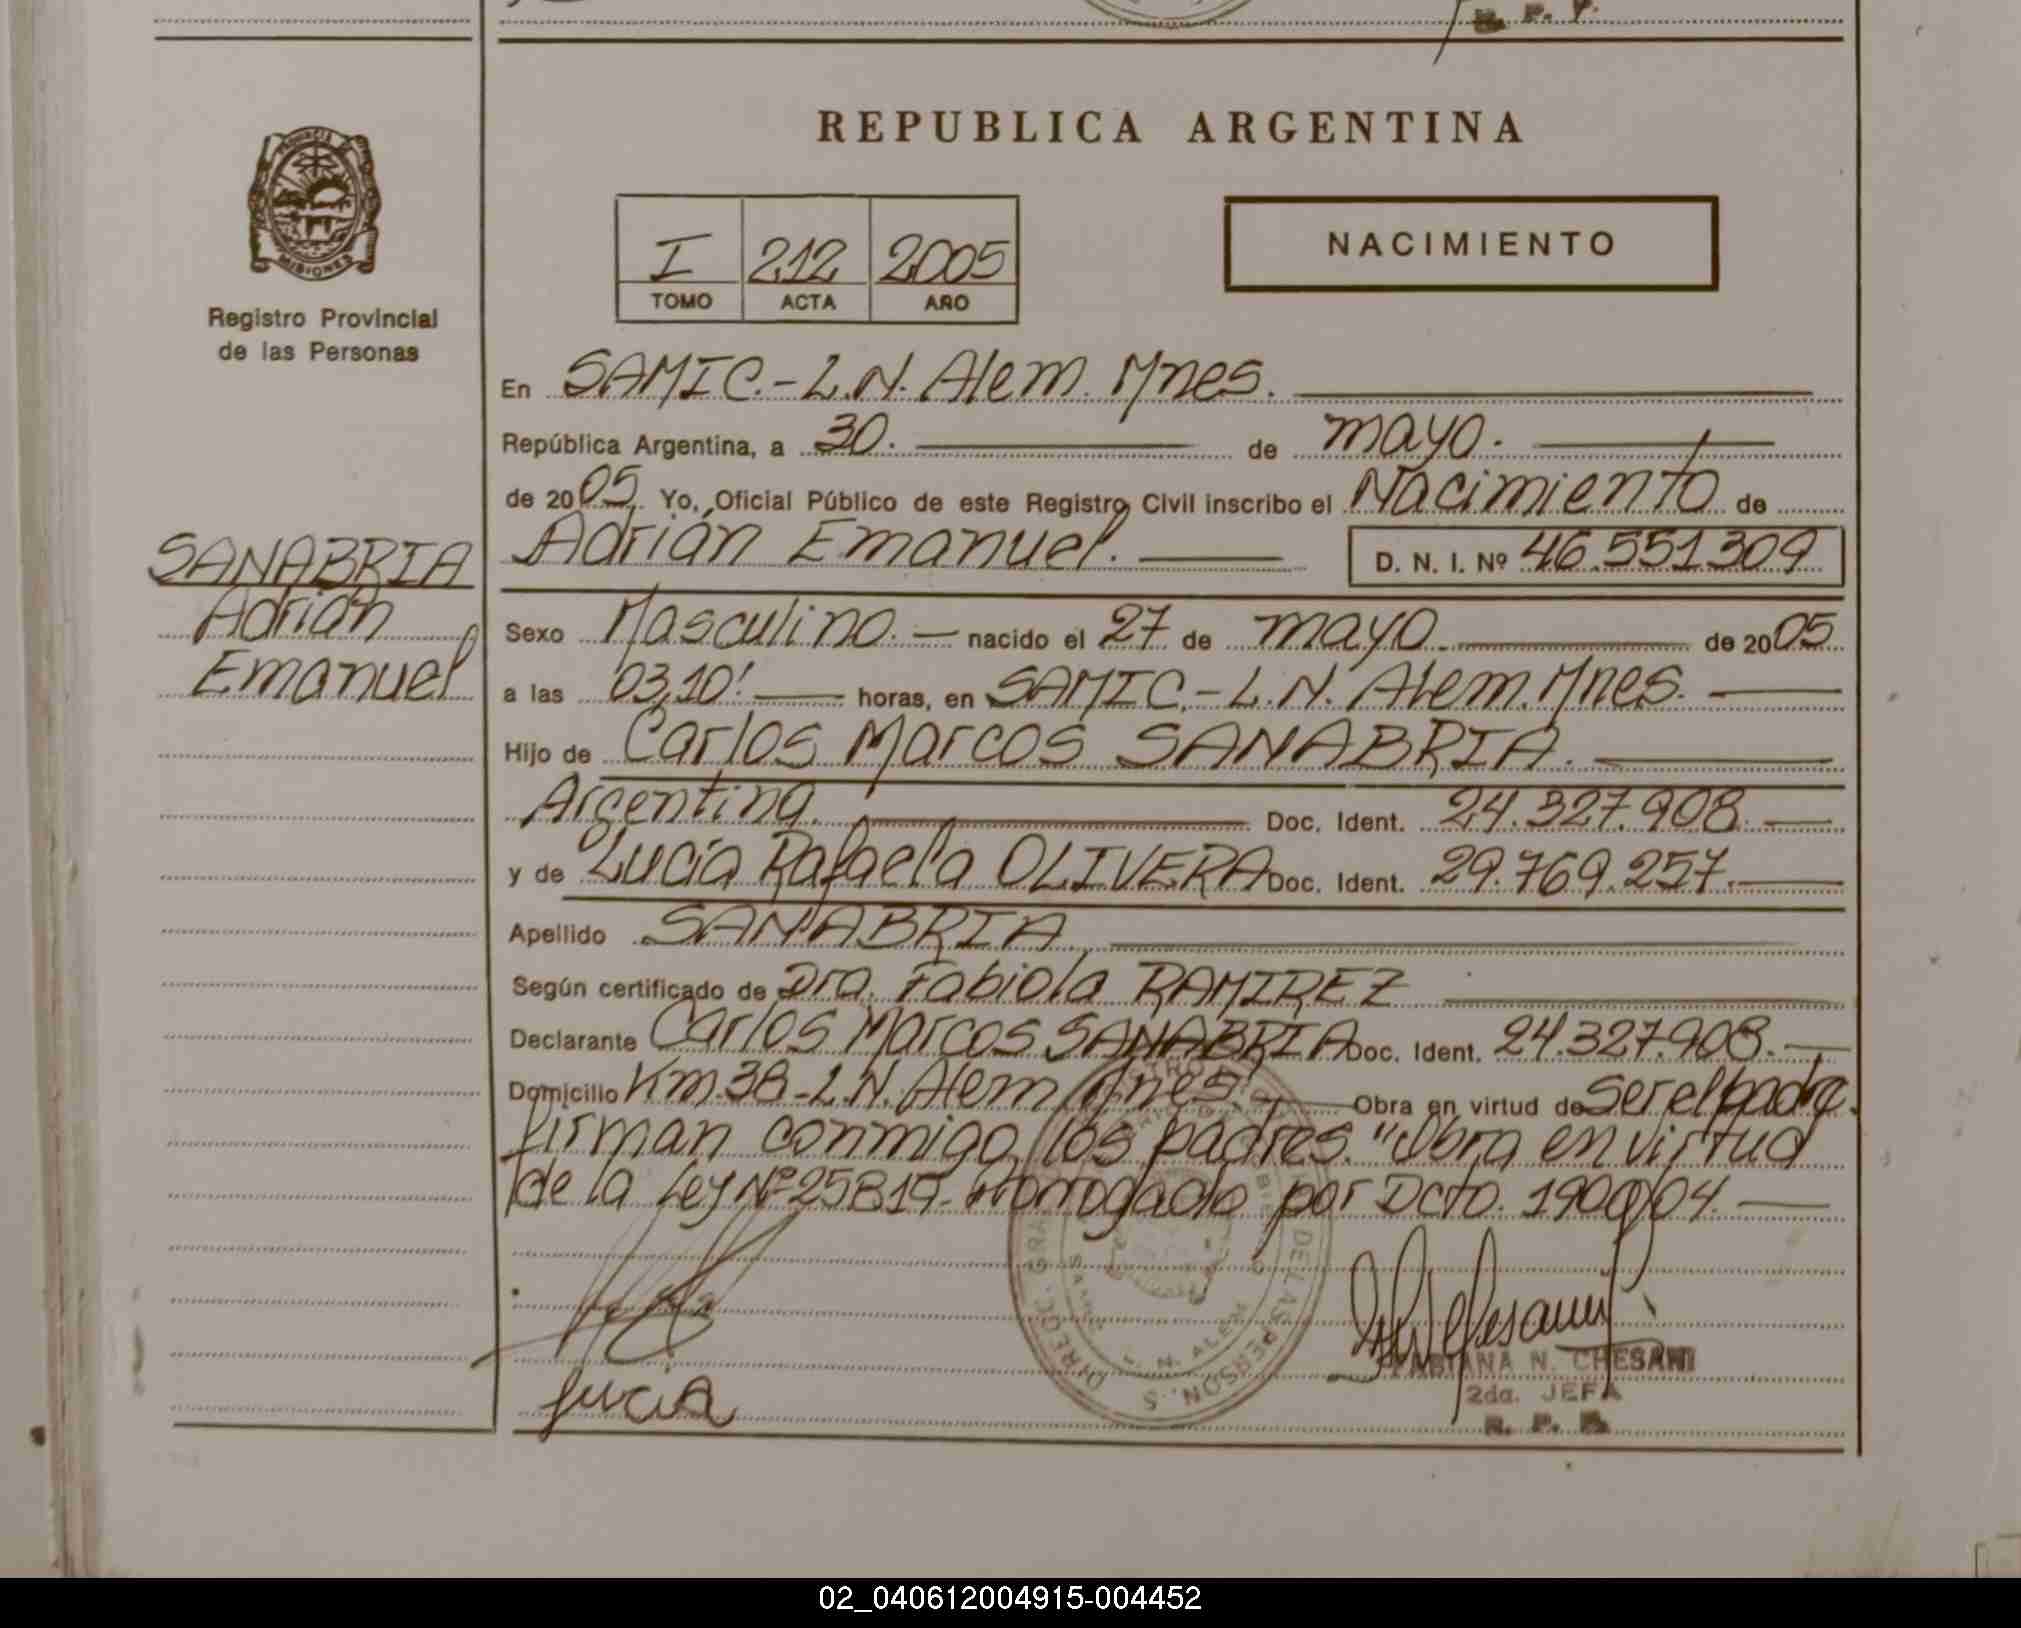 REPUBLICA ARGENTINA
PROVINCIA
MISIONES
Registro Provincial
de las Personas
I 212 2005
TOMO ACTA AÑO
NACIMIENTO
En SAMIC.-L.N. Alem. Mnes.
República Argentina, a 30. de mayo.
de 2005. Yo, Oficial Público de este Registro Civil inscribo el Nacimiento de
Adrián Emanuel. D. N. I. Nº 46.551.309
SANABRIA
Adrián
Emanuel
Sexo Masculino. nacido el 27 de mayo. de 2005.
a las 03,10'. horas, en SAMIC.-L.N. Alem. Mnes.
Hijo de Carlos Marcos SANABRIA.
Argentina. Doc. Ident. 24.327.908.
y de Lucía Rafaela OLIVERA Doc. Ident. 29.769.257.
Apellido SANABRIA.
Según certificado de Dra. Fabiola RAMIREZ
Declarante Carlos Marcos SANABRIA Doc. Ident. 24.327.908.
Domicilio Km.38-L.N. Alem Mnes. Obra en virtud de Ser el padre.
firman conmigo los padres. "Obra en virtud
de la Ley Nº 25819- por Dcto. 1900/04.
L. N. ALEM
DE LAS PERSONAS
Lucia
FABIANA N. CHESANI
2da. JEFA
R. P. P.
02_040612004915-004452